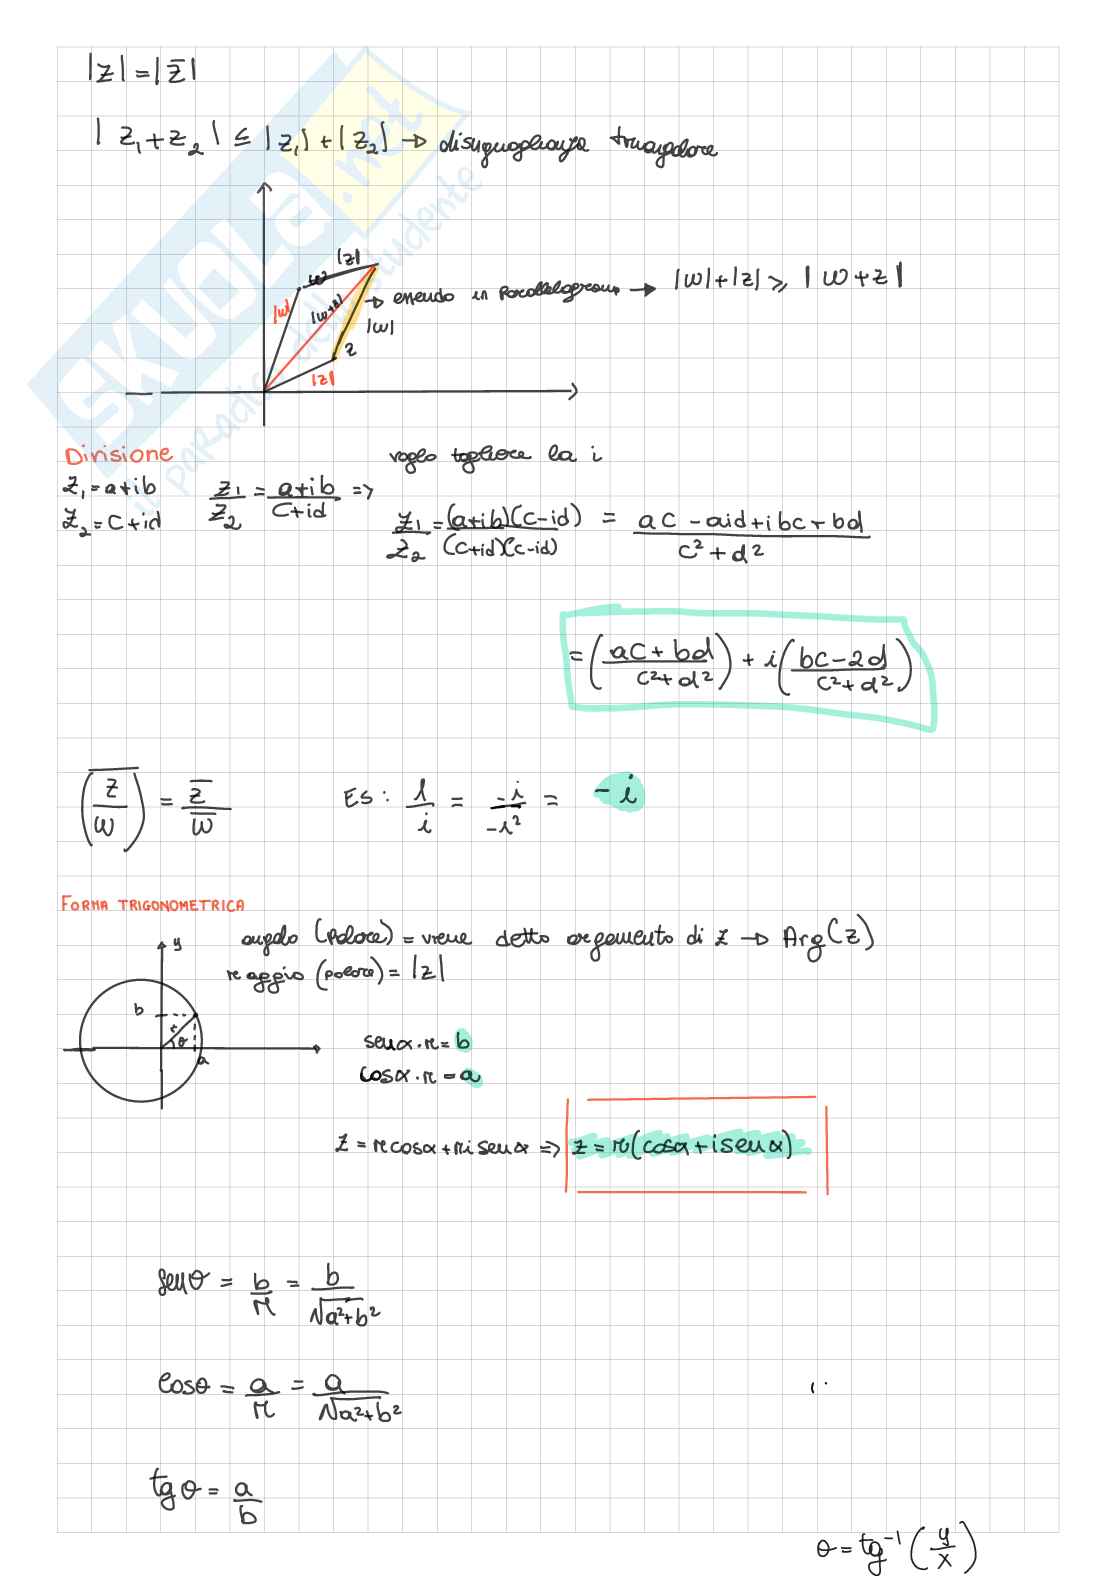 |z| = |z̅|
| z₁+z₂ | ≤ |z₁| + |z₂| → disuguaglianza triangolare
|z|
w
|w|
|w+z|
→ essendo un parallelogramma → |w|+|z| ≥ | w+z |
|w|
z
|z|
SKUOLA.net
Divisione
voglio togliere la i
z₁ = a+ib
z₂ = c+id
z₁/z₂ = (a+ib)/(c+id) =>
z₁/z₂ = (a+ib)(c-id)/(c+id)(c-id) = (ac - aid + ibc + bd)/(c²+d²)
= ((ac+bd)/(c²+d²)) + i((bc-2d)/(c²+d²))
\overline{(z/w)} = z̅/w̅
ES: 1/i = -i/-i² = -i
FORMA TRIGONOMETRICA
angolo (polare) = viene detto argomento di z → Arg(z)
raggio (polare) = |z|
y
b
r
θ
a
senα·r = b
cosα·r = a
z = r cosα + r i senα => z = r(cosα + i senα)
senθ = b/r = b/√(a²+b²)
cosθ = a/r = a/√(a²+b²)
tgθ = a/b
θ = tg⁻¹(y/x)